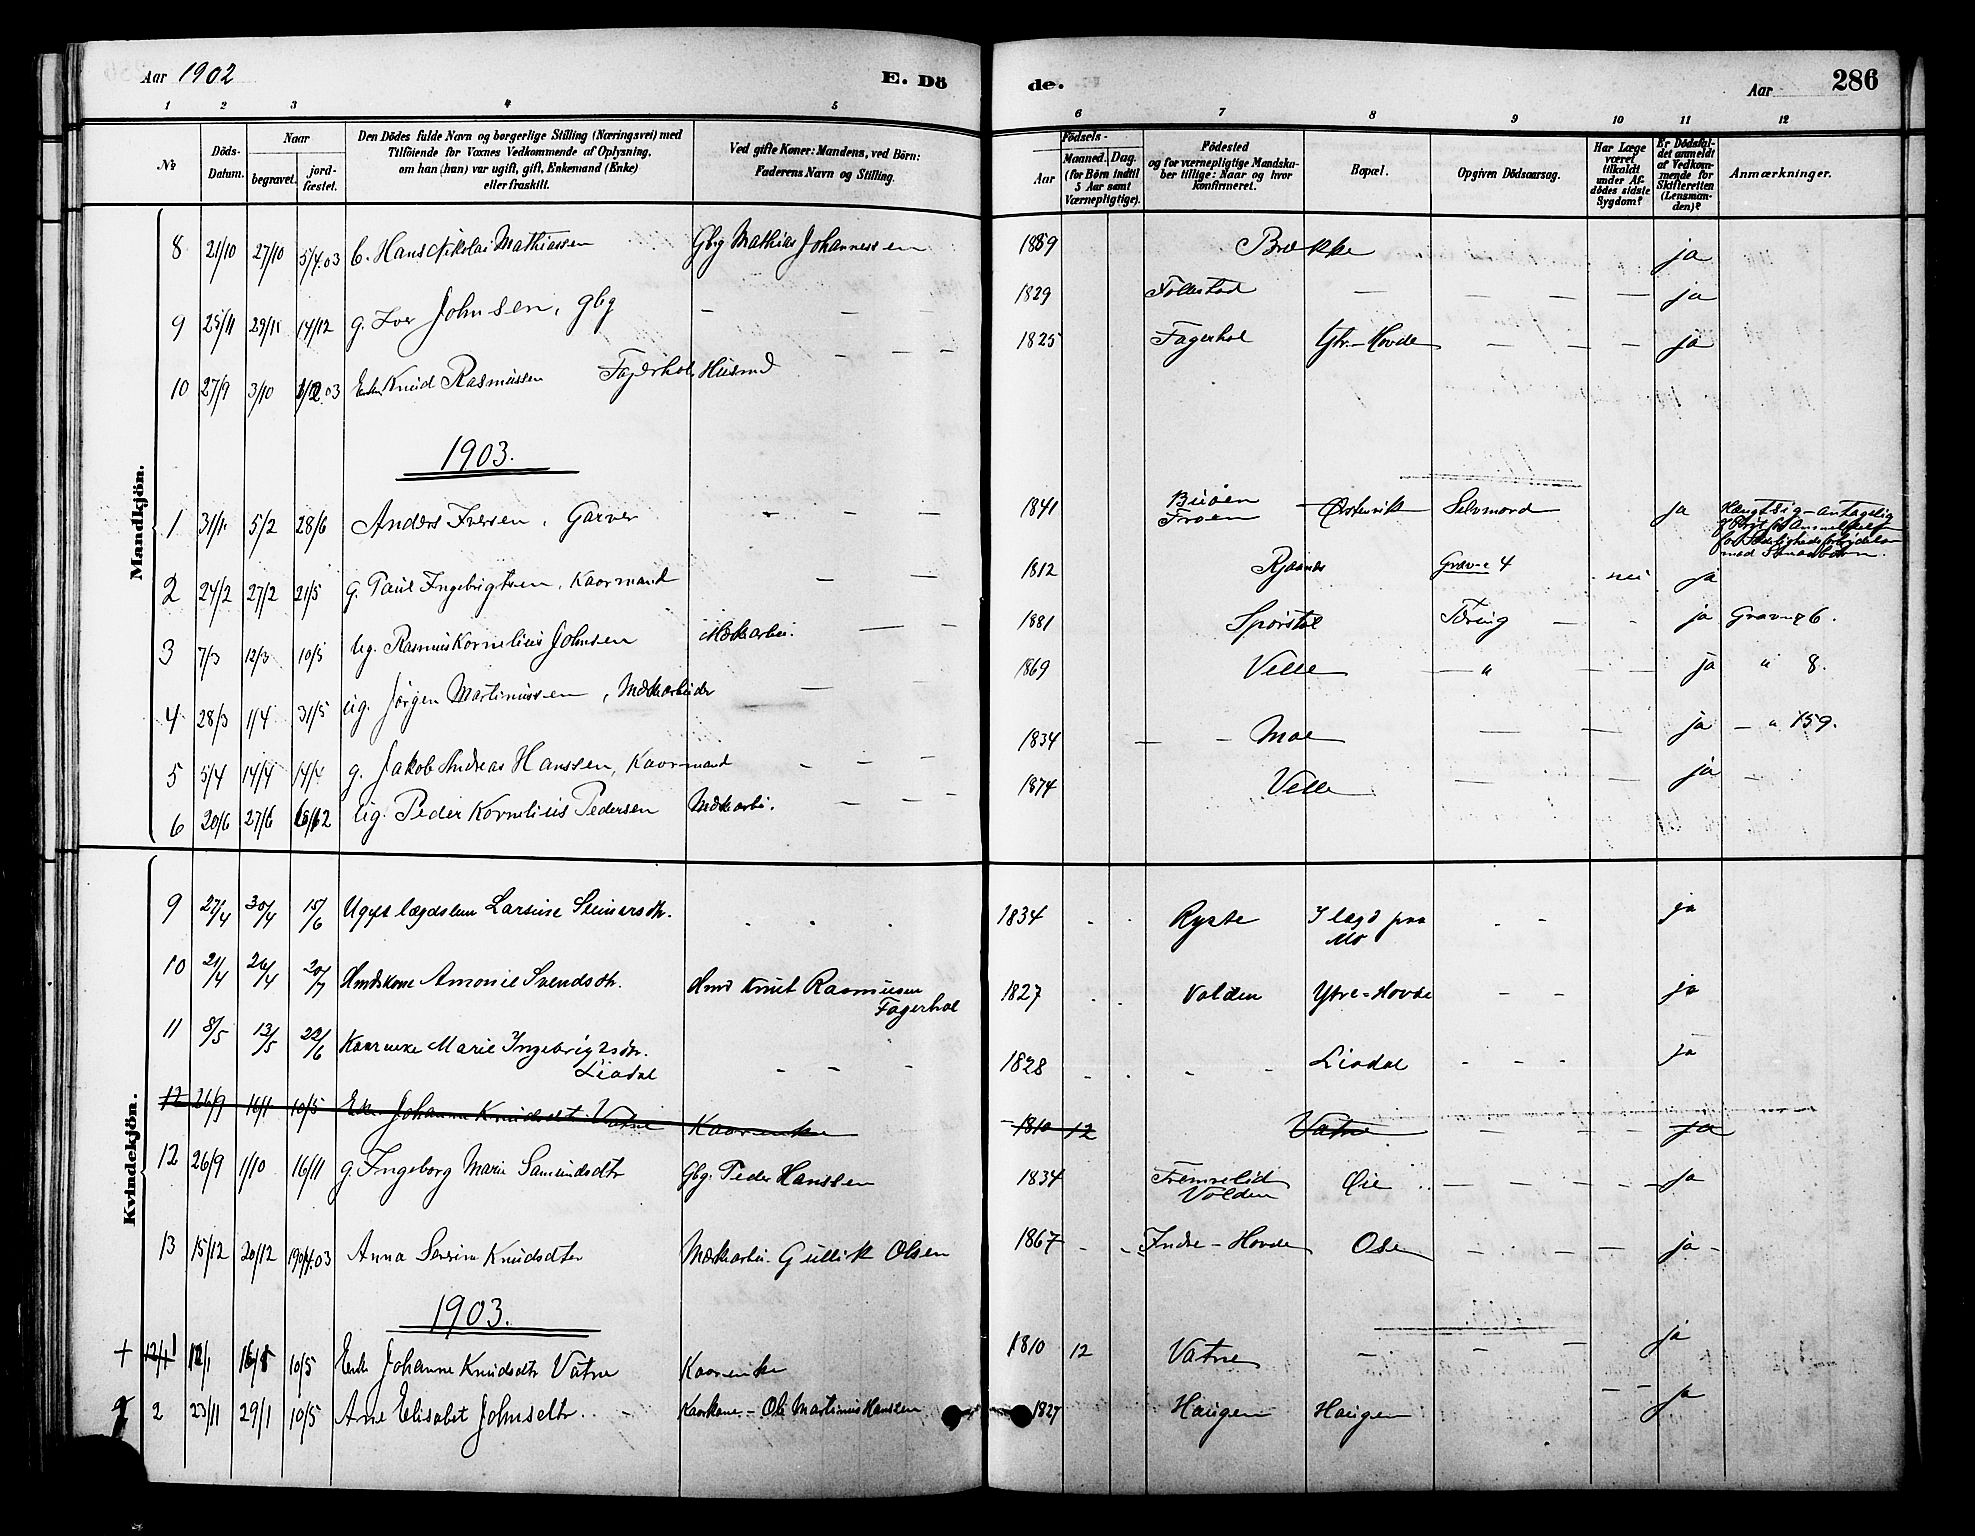 Aar 1902
E. Dö
de.
Aar
286
1 2 3 4 5 6 7 8 9 10 11 12
No
Döds-Datum.
Naar
begravet.
jord-fæstet.
Den Dödes fulde Navn og borgerlige Stilling (Næringsvei) med
Tilföiende for Voxnes Vedkommende af Oplysning,
om han (hun) var ugift, gift, Enkemand (Enke)
eller fraskilt.
Ved gifte Koner: Mandens, ved Börn:
Faderens Navn og Stilling.
Födsels-
Aar
Maaned. Dag.
(for Börn indtil
5 Aar samt
Værnepligtige).
Födested
og for værnepligtige Mandska-
ber tillige: Naar og hvor
konfirmeret.
Bopæl.
Opgiven Dödsaarsag.
Har Læge
været
tilkaldt
under Af-
dödes sidste
Sygdom?
Er Dödsfal-
det anmeldt
af Vedkom-
mende for
Skifteretten
(Lensman-
den)?
Anmærkninger.
Mandkjön.
8 21/10 27/10 5/4.03 Hans Nikolai Mathiassen Gbrg Mathias Johannessen 1859 Brække ja
9 25/11 29/11 14/12 g. Iver Johnsen, gbg — — 1829 Follestad — — — — ja
10 27/9 3/10 Enkem Knud Rasmussen Fagerhol, Husmd — — — 1825 Fagerhol Ytr.-Hovde — — — ja
1903.
1 31/1 5/2 28/6 Anders Iversen, Garver 1841 Ørstenvik Selvmord ja Hængt sig – antagelig
2 24/2 27/2 21/5 g. Paul Ingebrigtsen, Kaarmand — — 1812 Græve 4 nei ja
3 7/3 12/3 10/5 ug. Rasmus Kornelius Johnsen — — 1881 Tæring — — ja Grav № 6.
4 28/3 1/4 31/5 ug. Jörgen Martinussen, — — 1869 Velle — " — — ja " 8.
5 5/4 14/4 g. Jakob Andreas Hanssen, Kaarmand — — — 1834 — — Moe — — ja — " 159.
6 20/6 27/6 ug. Peder Kornelius Pedersen — — — 1874 Velle — — ja —
Kvindekjön.
9 27/4 30/4 15/6 Ugift lægdslem Larsine 1834 Ryste I lægd paa
Mo
ja
10 21/4 26/4 20/7 Hmdskone Svendsdtr. Hmd Knut Rasmussen
Fagerhol
1827 Volden Ytre-Hovde — — ja
11 8/5 13/5 22/6 Marie Ingebrigtsdtr.
Liadal
— — — 1828 Liadal — — — ja
12 26/9 10/5 Enke Johanne Knudsdtr Vatne Kaarenke 1810 12 Vatne — — — ja
12 26/9 1/10 16/11 g. Ingeborg Marie Samundsdtr Gbg. Peder Hanssen 1834 Fremrelid
Volden
Øie — — — — ja
13 15/12 20/12 Anna Serine Knudsdtr Gullik Olsen 1867 Indre-Hovde Ose — — — — ja
1903.
+ 12/1 10/5 Enke Johanne Knudsdtr Vatne Kaarenke 1810 12 Vatne — — ja
2 29/1 10/5 Ane Elisabet Johnsdtr. Kaarkone – Ole Martinus Hanssen 1827 Haugen Haugen — — ja